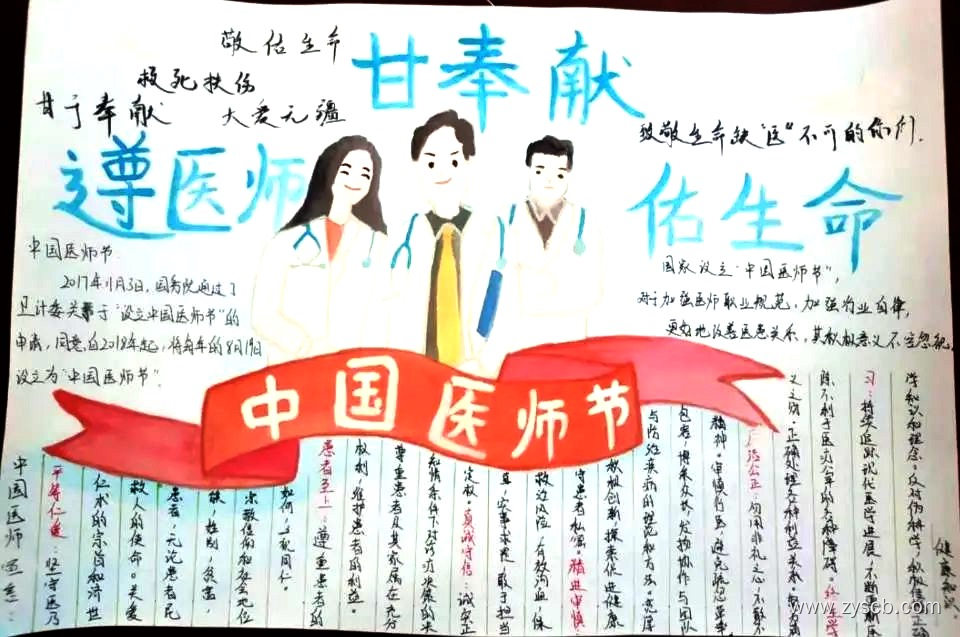 敬佑生命
救死扶伤
甘于奉献
大爱无疆
甘奉献
致敬生命缺"医"不可的你们.
遵医师
佑生命
中国医师节
2017年11月3日,国务院通过了
卫计委关于"设立中国医师节"的
申请,同意自2018年起,将每年的8月19日
设立为"中国医师节".
国家设立"中国医师节",
对于加强医师职业规范,加强行业自律,
更好地改善医患关系,其积极意义不容忽视.
中国医师节
中国医师宣言:
平等仁爱:坚守医乃
仁术的宗旨和济世
救人的使命。关爱
患者,无论患者民
族,性别,贫富
宗教信仰和社会地位
如何,一视同仁。
患者至上:遵重患者的
权利,维护患者的利益。
尊重患者及其家属在充分
知情条件下对诊疗决策的决
定权。真诚守信:诚实正
直,实事求是,敢于担当
救治风险,有效沟通,保
守患者私密。精进审慎:
积极创新,探索促进健康
与防治疾病的理论和方法。宽厚
包容,博采众长,发扬协作与团队
精神。审慎行医,避免疏忽草率
廉洁公正:勿用非礼之心,不取不
义之财。正确处理各种利益关系
除不利于医患公平的各种障碍。终学
习:持续追踪现代医学进展,不断更新
学知识和理念。反对伪科学,积极推
健康知识。
www.zyscb.com